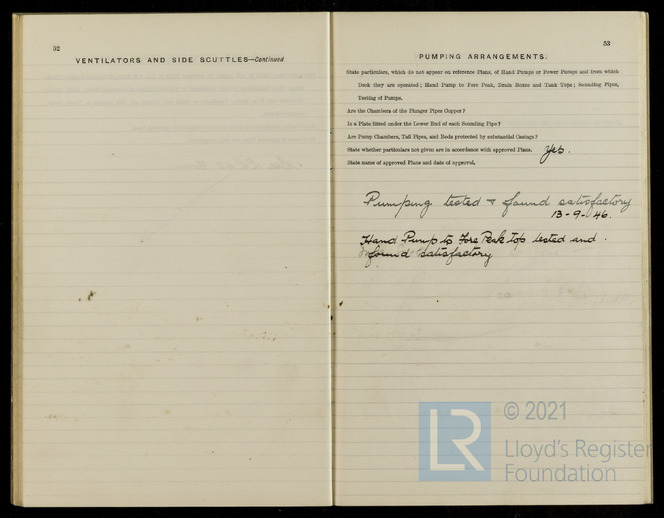 52
VENTILATORS AND SIDE SCUTTLES—Continued
53
PUMPING ARRANGEMENTS.
State particulars, which do not appear on reference Plans, of Hand Pumps or Power Pumps and from which
Deck they are operated; Hand Pump to Fore Peak, Drain Boxes and Tank Tops; Sounding Pipes,
Testing of Pumps.
Are the Chambers of the Plunger Pipes Copper?
Is a Plate fitted under the Lower End of each Sounding Pipe?
Are Pump Chambers, Tail Pipes, and Rods protected by substantial Casings?
State whether particulars not given are in accordance with approved Plans. Yes.
State name of approved Plans and date of approval.
Pumping tested & found satisfactory
13-9-46.
Hand Pump to Fore Peak top tested and
found satisfactory
LR © 2021
Lloyd's Register
Foundation